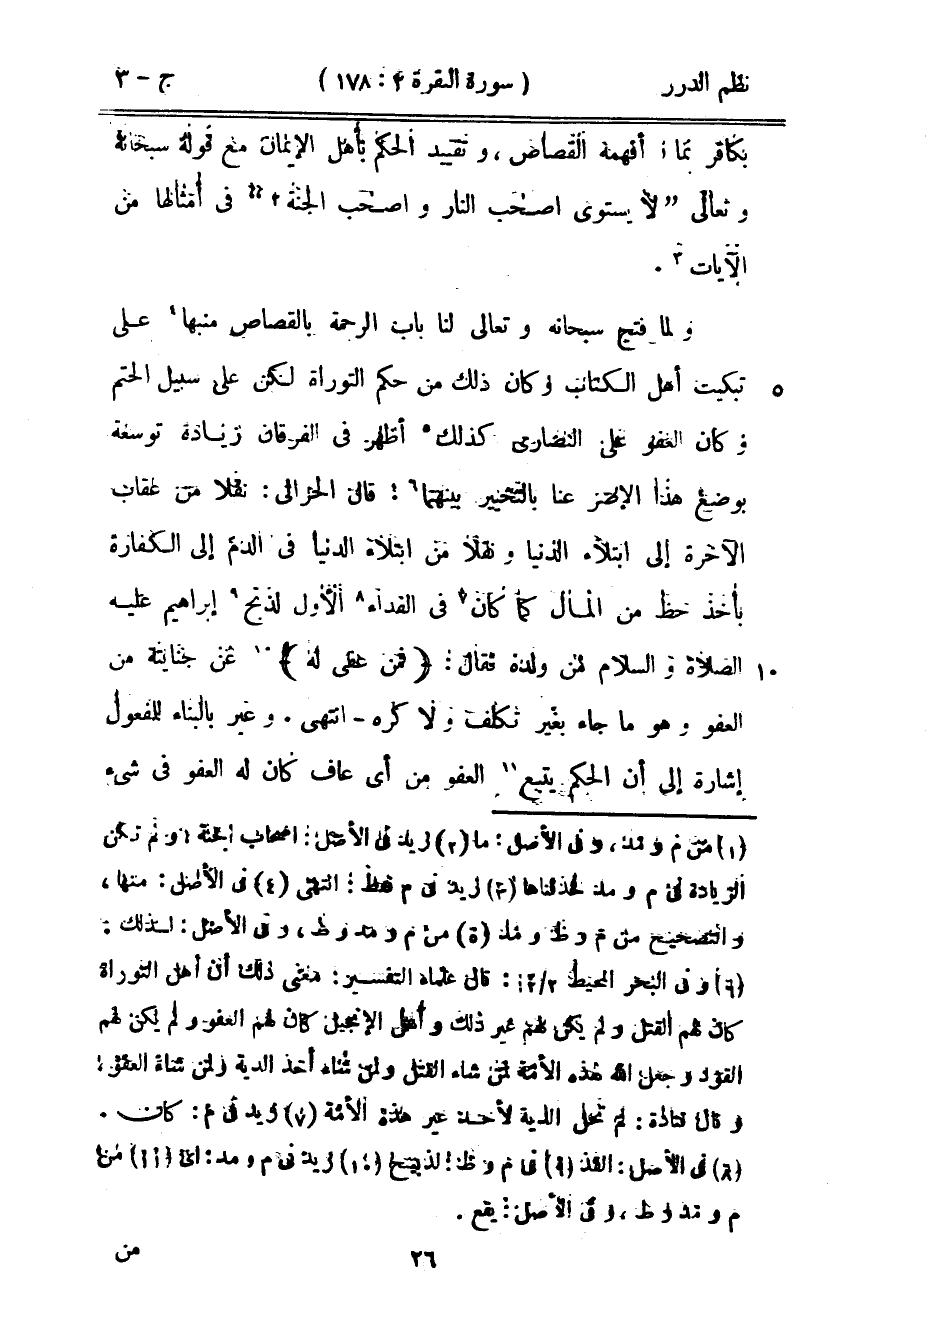 نظم الدرر ( سورة البقرة ٢ : ١٧٨ ) ج - ٣
بكافر بما ١ أفهمه القصاص ، و تقييد الحكم بأهل الإيمان مع قوله سبحانه
و تعالى ” لا يستوى اصحٰب النار و اصحٰب الجنة ٢ “ فى أمثالها من
الآيات ٣ .
و لما فتح سبحانه و تعالى لنا باب الرحمة بالقصاص منبها ٤ على
تبكيت أهل الكتاب و كان ذلك من حكم التوراة لكن على سبيل الحتم ٥
و كان العفو على النصارى كذلك ٥ أظهر فى الفرقان زيادة توسعة
بوضع هذا الإصر عنا بالتخيير بينهما ٦ ؛ قال الحرالى : نقلا من عقاب
الآخرة إلى ابتلاء الدنيا و نقلا من ابتلاء الدنيا فى الدم إلى الكفارة
بأخذ حظ من المال كما كان ٧ فى الفداء ٨ الأول لذبح ٩ إبراهيم عليه
الصلاة و السلام من ولده فقال : ﴿ فمن عفى له ﴾ ١٠ عن جنايته من ١٠
العفو و هو ما جاء بغير تكلف و لا كره - انتهى . و عبر بالبناء للمفعول
إشارة إلى أن الحكم يتبع ١١ العفو من أى عاف كان له العفو فى شىء
(١) من م و مد ، و فى الأصل : ما (٢) زيد فى الأصل : اصحاب الجنة ؛ و لم تكن
الزيادة فى م و مد فحذفناها (٣) زيد فى م فقط : انتهى (٤) فى الأصل : منها ،
و التصحيح من م و ظ و مد (٥) من م و مد و ظ ، و فى الأصل : لذلك ؛
(٦) و فى البحر المحيط ٢/١٢ : قال علماء التفسير : معنى ذلك أن أهل التوراة
كان لهم القتل و لم يكن لهم غير ذلك و أهل الإنجيل كان لهم العفو و لم يكن لهم
القود و جعل الله لهذه الأمة لمن شاء القتل و لمن شاء أخذ الدية و لمن شاء العفو ؛
و قال قتادة : لم تحل الدية لأحد غير هذه الأمة (٧) زيد فى م : كان .
(٨) فى الأصل : الفذ (٩) فى م و ظ : لذبيح (١٠) زيد فى م و مد : اى (١١) من
م و مد و ظ ، و فى الأصل : يقع .
٢٦ من